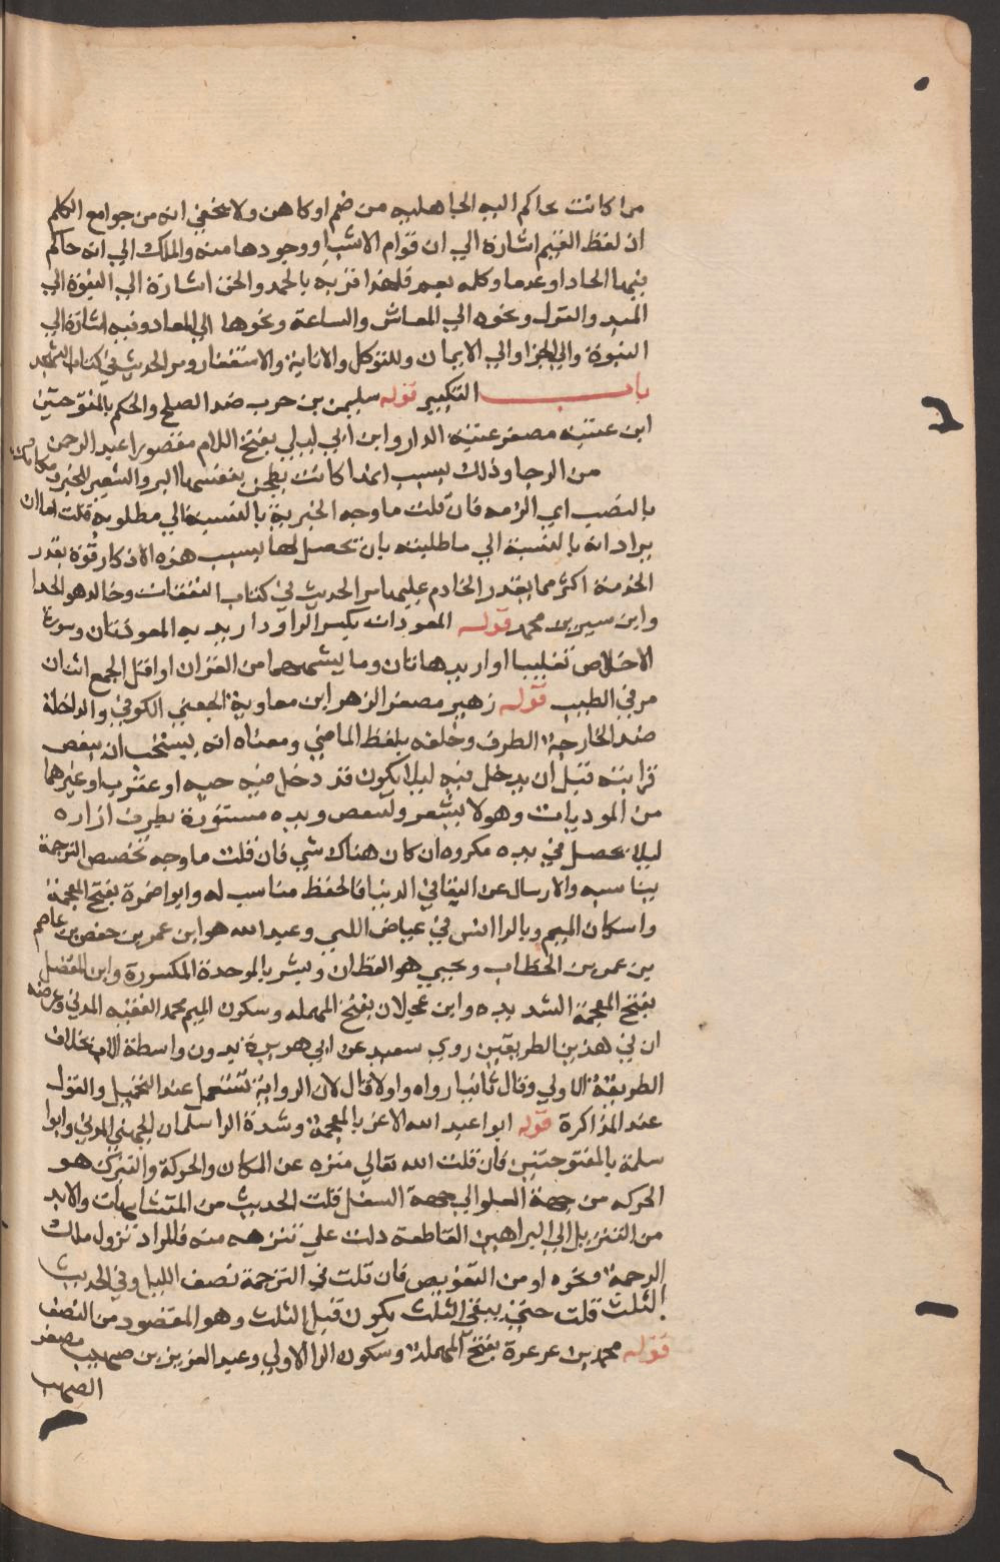 مما كانت تحاكم اليه الجاهلية من صنم او كاهن ولا يخفي انه من جوامع الكلم
اذ لفظ القيم اشارة الي ان قوام الاشيا ووجودها منه والملك الي انه حاكم
فيها ايجادا وعدما وكله نعم فلهذا قرنه بالحمد والحق اشارة الي
المبدء والقول ونحوه الي المعاش والساعة ونحوها الي المعاد وفيه اشارة الي
النبوة والي الجزا والي الايمان والتوكل والانابة والاستغفار ومر الحديث في كتاب التهجد
باب التكبير قوله سليمن بن حرب ضد الصلح والحكم بالمفتوحتين
ابن عتيبة مصغر عتبة الدار وابن ابي ليلي بفتح اللام مقصورا عبد الرحمن
من الرحا وذلك بسبب انها كانت تطحن بنفسها البر والشعير للخبز ومكانك
بالنصب اي الزمه فان قلت ما وجه الخيرية بالنسبة الي مطلوبه قلت اما ان
يراد انه بالنسبة الي ما طلبته بان تحصل لها بسبب هذه الاذكار قوة بقدر
الخدمة اكثر مما يقدر الخادم عليه مر الحديث في كتاب النفقات وخالد هو الحذا
وابن سيرين محمد قوله المعوذات بكسر الواو اريد به المعوذتان وسورة
الاخلاص تغليبا او اريد هاتان وما يشبههما من القران او اقل الجمع اثنان
مر في الطب قوله زهير مصغر الزهر ابن معاوية الجعفي الكوفي والداخلة
ضد الخارجة الطرف وخلفه بلفظ الماضي ومعناه انه يستحب ان ينفض
فراشه قبل ان يدخل فيه ليلا يكون قد دخل فيه حيه او عقرب او غيرهما
من الموذيات وهو لا يشعر ولينفض ويده مستورة بطرف ازاره
ليلا يحصل في يده مكروه ان كان هناك شي فان قلت ما وجه تخصيص الرحمة
يناسبه والارسال عن البقا في الدنيا فالحفظ مناسب له وابو ضمرة بفتح المعجمة
واسكان الميم وبالرا انس في عياض الليثي وعبد الله هو ابن عمر بن حفص بن عاصم
بن عمر بن الخطاب ويحيي هو القطان وبشر بالموحدة المكسورة وابن المفضل
بفتح المعجمة الشديده وابن عجلان بفتح المهمله وسكون الجيم محمد الفقيه المدني وغرضه
ان في هذين الطريقين روي سعيد عن ابي هريرة بدون واسطة الاب بخلاف
الطريقة الاولي وقال ثانيا رواه واولا قال لان الرواية تستعمل عند التحمل والقول
عند المذاكرة قوله ابو عبد الله الاغر بالمعجمة وشدة الرا سلمان الجهني المدني وابو
سلمة بالمفتوحتين فان قلت الله تعالي منزه عن المكان والحركة والنزل هو
الحركه من جهة العلو الي جهة السفل قلت الحديث من المتشابهات ولابد
من التنزيل الي البراهين القاطعة دلت علي تنزهه منه فالمراد نزول ملك
الرحمة ونحوه او من التفويض فان قلت في الترجمة نصف الليل وفي الحديث
الثلث قلت حتي يبقي الثلث يكون قبل الثلث وهو المقصود من النصف
قوله محمد بن عرعرة بفتح المهملة وسكون الرا الاولي وعبد العزيز بن صهيب مصغر
الصهب